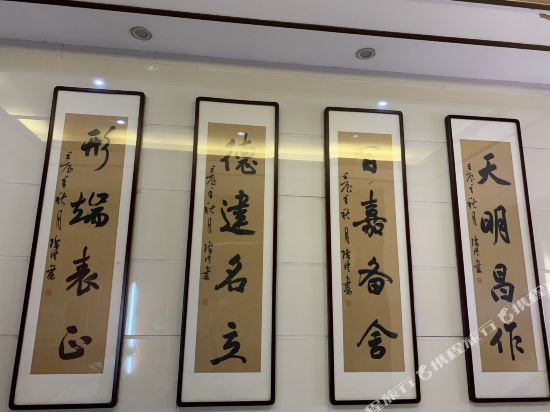 天明昌作
壬辰年秋月 书
百嘉备舍
壬辰年秋月 书
德建名立
壬辰年秋月 书
形端表正
壬辰年秋月 书
携程旅行
携程